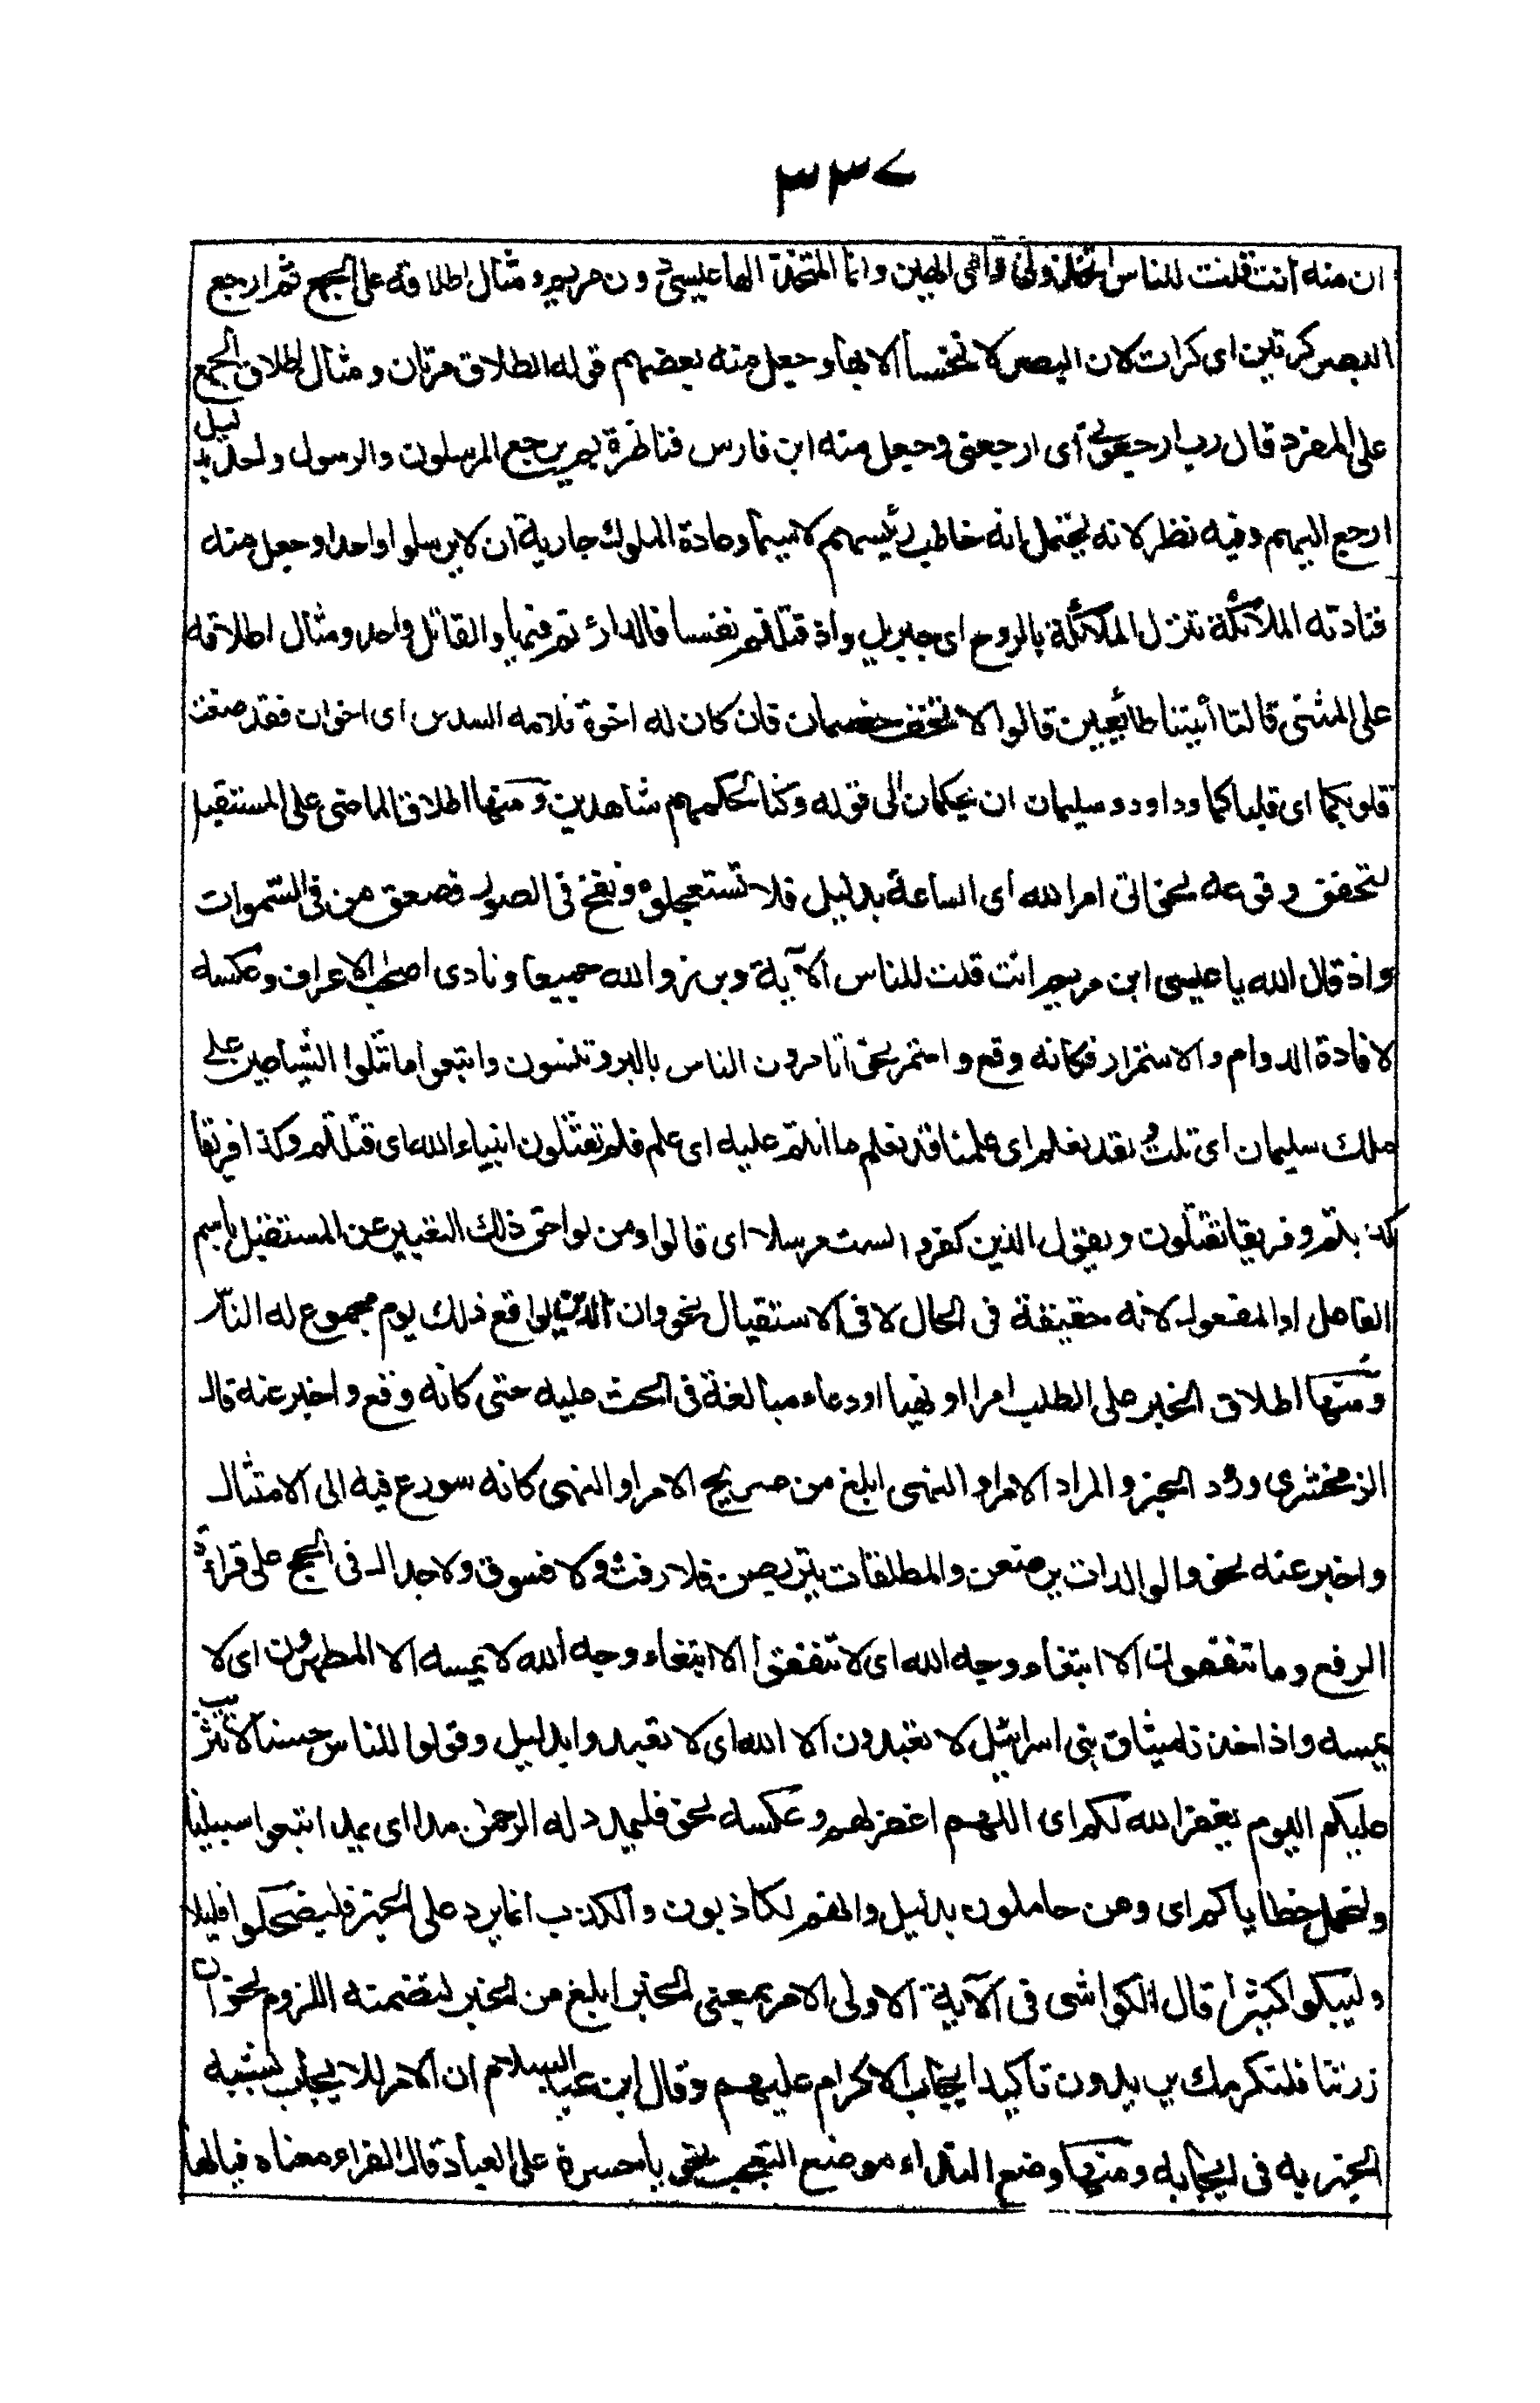 ٣٣٧
ان منه أنت قلت للناس اتخذوني وامي الهين وانما المتخذ الها عيسى دون مريم ومثال اطلاقه على الجمع ثم ارجع
البصر كرتين اى كرات لان البصر لا يخسأ الا بها وجعل منه بعضهم قوله الطلاق مرتان ومثال اطلاق الجمع
على المفرد قال رب ارجعونى أى ارجعنى وجعل منه ابن فارس فناظرة بم يرجع المرسلون والرسول واحد بدليل
ارجع اليهم وفيه نظر لانه يحتمل انه خاطب رئيسهم لاسيما وعادة الملوك جارية ان لا يرسلوا واحدا وجعل منه
فنادته الملائكة تنزل الملائكة بالروح اى جبريل واذ قتلتم نفسا فادارئتم فيها والقاتل واحد ومثال اطلاقه
على المثنى قالتا أتينا طائعين قالوا لا تخف خصمان فان كان له اخوة فلامه السدس اى اخوان فقد صغت
قلوبكما اى قلباكما وداود وسليمان ان يحكمان الى قوله وكنا لحكمهم شاهدين ومنها اطلاق الماضى على المستقبل
لتحقق وقوعه نحو اتى امر الله اى الساعة بدليل فلا تستعجلوه ونفخ فى الصور فصعق من فى السموات
واذ قال الله يا عيسى ابن مريم انت قلت للناس الآية وبرزوا لله جميعا ونادى اصحب الاعراف وعكسه
لافادة الدوام والاستمرار فكانه وقع واستمر نحو اتامرون الناس بالبر وتنسون واتبعوا ما تتلوا الشياطين على
ملك سليمان اى تلت ولقد نعلم اى علمنا قد يعلم ما انتم عليه اى علم فلم تقتلون انبياء الله اى قتلتم وكذا فريقا
كذبتم وفريقا تقتلون ويقول الذين كفروا لست مرسلا اى قالوا ومن لواحق ذلك التعبير عن المستقبل باسم
الفاعل او المفعول لانه حقيقة فى الحال لا فى الاستقبال نحو وان الدين لواقع ذلك يوم مجموع له الناس
ومنها اطلاق الخبر على الطلب امرا او نهيا او دعاء مبالغة فى الحث عليه حتى كانه وقع واخبر عنه قال
الزمخشرى ورود الخبر والمراد الامر او النهى ابلغ من صريح الامر او النهى كانه سورع فيه الى الامتثال
واخبر عنه نحو والوالدات يرضعن والمطلقات يتربصن فلا رفث ولا فسوق ولا جدال فى الحج على قراءة
الرفع وما تنفقون الا ابتغاء وجه الله اى لا تنفقوا الا ابتغاء وجه الله لا يمسه الا المطهرون اى لا
يمسه واذ اخذنا ميثاق بنى اسرائيل لا تعبدون الا الله اى لا تعبدوا بدليل وقولوا للناس حسنا لا تثريب
عليكم اليوم يغفر الله لكم اى اللهم اغفر لهم وعكسه نحو فليمدد له الرحمن مدا اى يمد اتبعوا سبيلنا
ولنحمل خطاياكم اى وهن حاملون بدليل وانهم لكاذبون والكذب انما يرد على الخبر فليضحكوا قليلا
وليبكوا كثيرا قال الكواشى فى الآية الاولى الامر بمعنى الخبر ابلغ من الخبر لتضمنه اللزوم نحو ان
زرتنا فلنكرمك يريدون تاكيد ايجاب الاكرام عليهم وقال ابن عبد السلام ان الامر للايجاب يشبه
الخبر به فى ايجابه ومنها وضع النداء موضع التعجب نحو يا حسرة على العباد قال الفراء معناه فيا لها